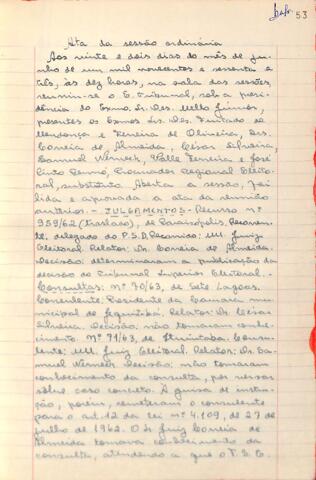 53
Ata da sessão ordinária
Aos vinte e dois dias do mês de ju-
nho de um mil novecentos e sessenta e
três, às dez horas, na sala das sessões,
reuniu-se o E. Tribunal, sob a presi-
dência do Exmo. Sr. Des. Mello Júnior,
presentes os Exmos. Srs. Des. Furtado de
Mendonça e Ferreira de Oliveira, Drs.
Correia de Almeida, César Silveira,
Samuel Werneck, Valle Ferreira e José
Pinto Renno, Procurador Regional Eleito-
ral, substituto. Aberta a sessão, foi
lida e aprovada a ata da reunião
anterior. - JULGAMENTOS - Recurso nº
959/62 (traslado), de Paraisópolis. Recorren-
te: delegado do P.S.D. Recorrido: MM. Juiz
Eleitoral. Relator: Dr. Correia de Almeida.
Decisão: determinaram a publicação da
decisão do Tribunal Superior Eleitoral. -
Consultas: Nº 70/63, de Sete Lagoas.
Consulente: Presidente da Câmara mu-
nicipal de Jequitibá. Relator: Dr. César
Silveira. Decisão: não tomaram conhe-
cimento. Nº 71/63, de Ituiutaba. Consu-
lente: MM. Juiz Eleitoral. Relator: Dr. Sa-
muel Werneck. Decisão: não tomaram
conhecimento da consulta, por versar
sôbre caso concreto. À guisa de instru-
ção, porém, remeteram o consulente
para o art. 12 da lei nº 4.109, de 27 de
julho de 1962. O Sr. Juiz Correia de
Almeida tomava conhecimento da
consulta, atendendo a que o T.S.E.